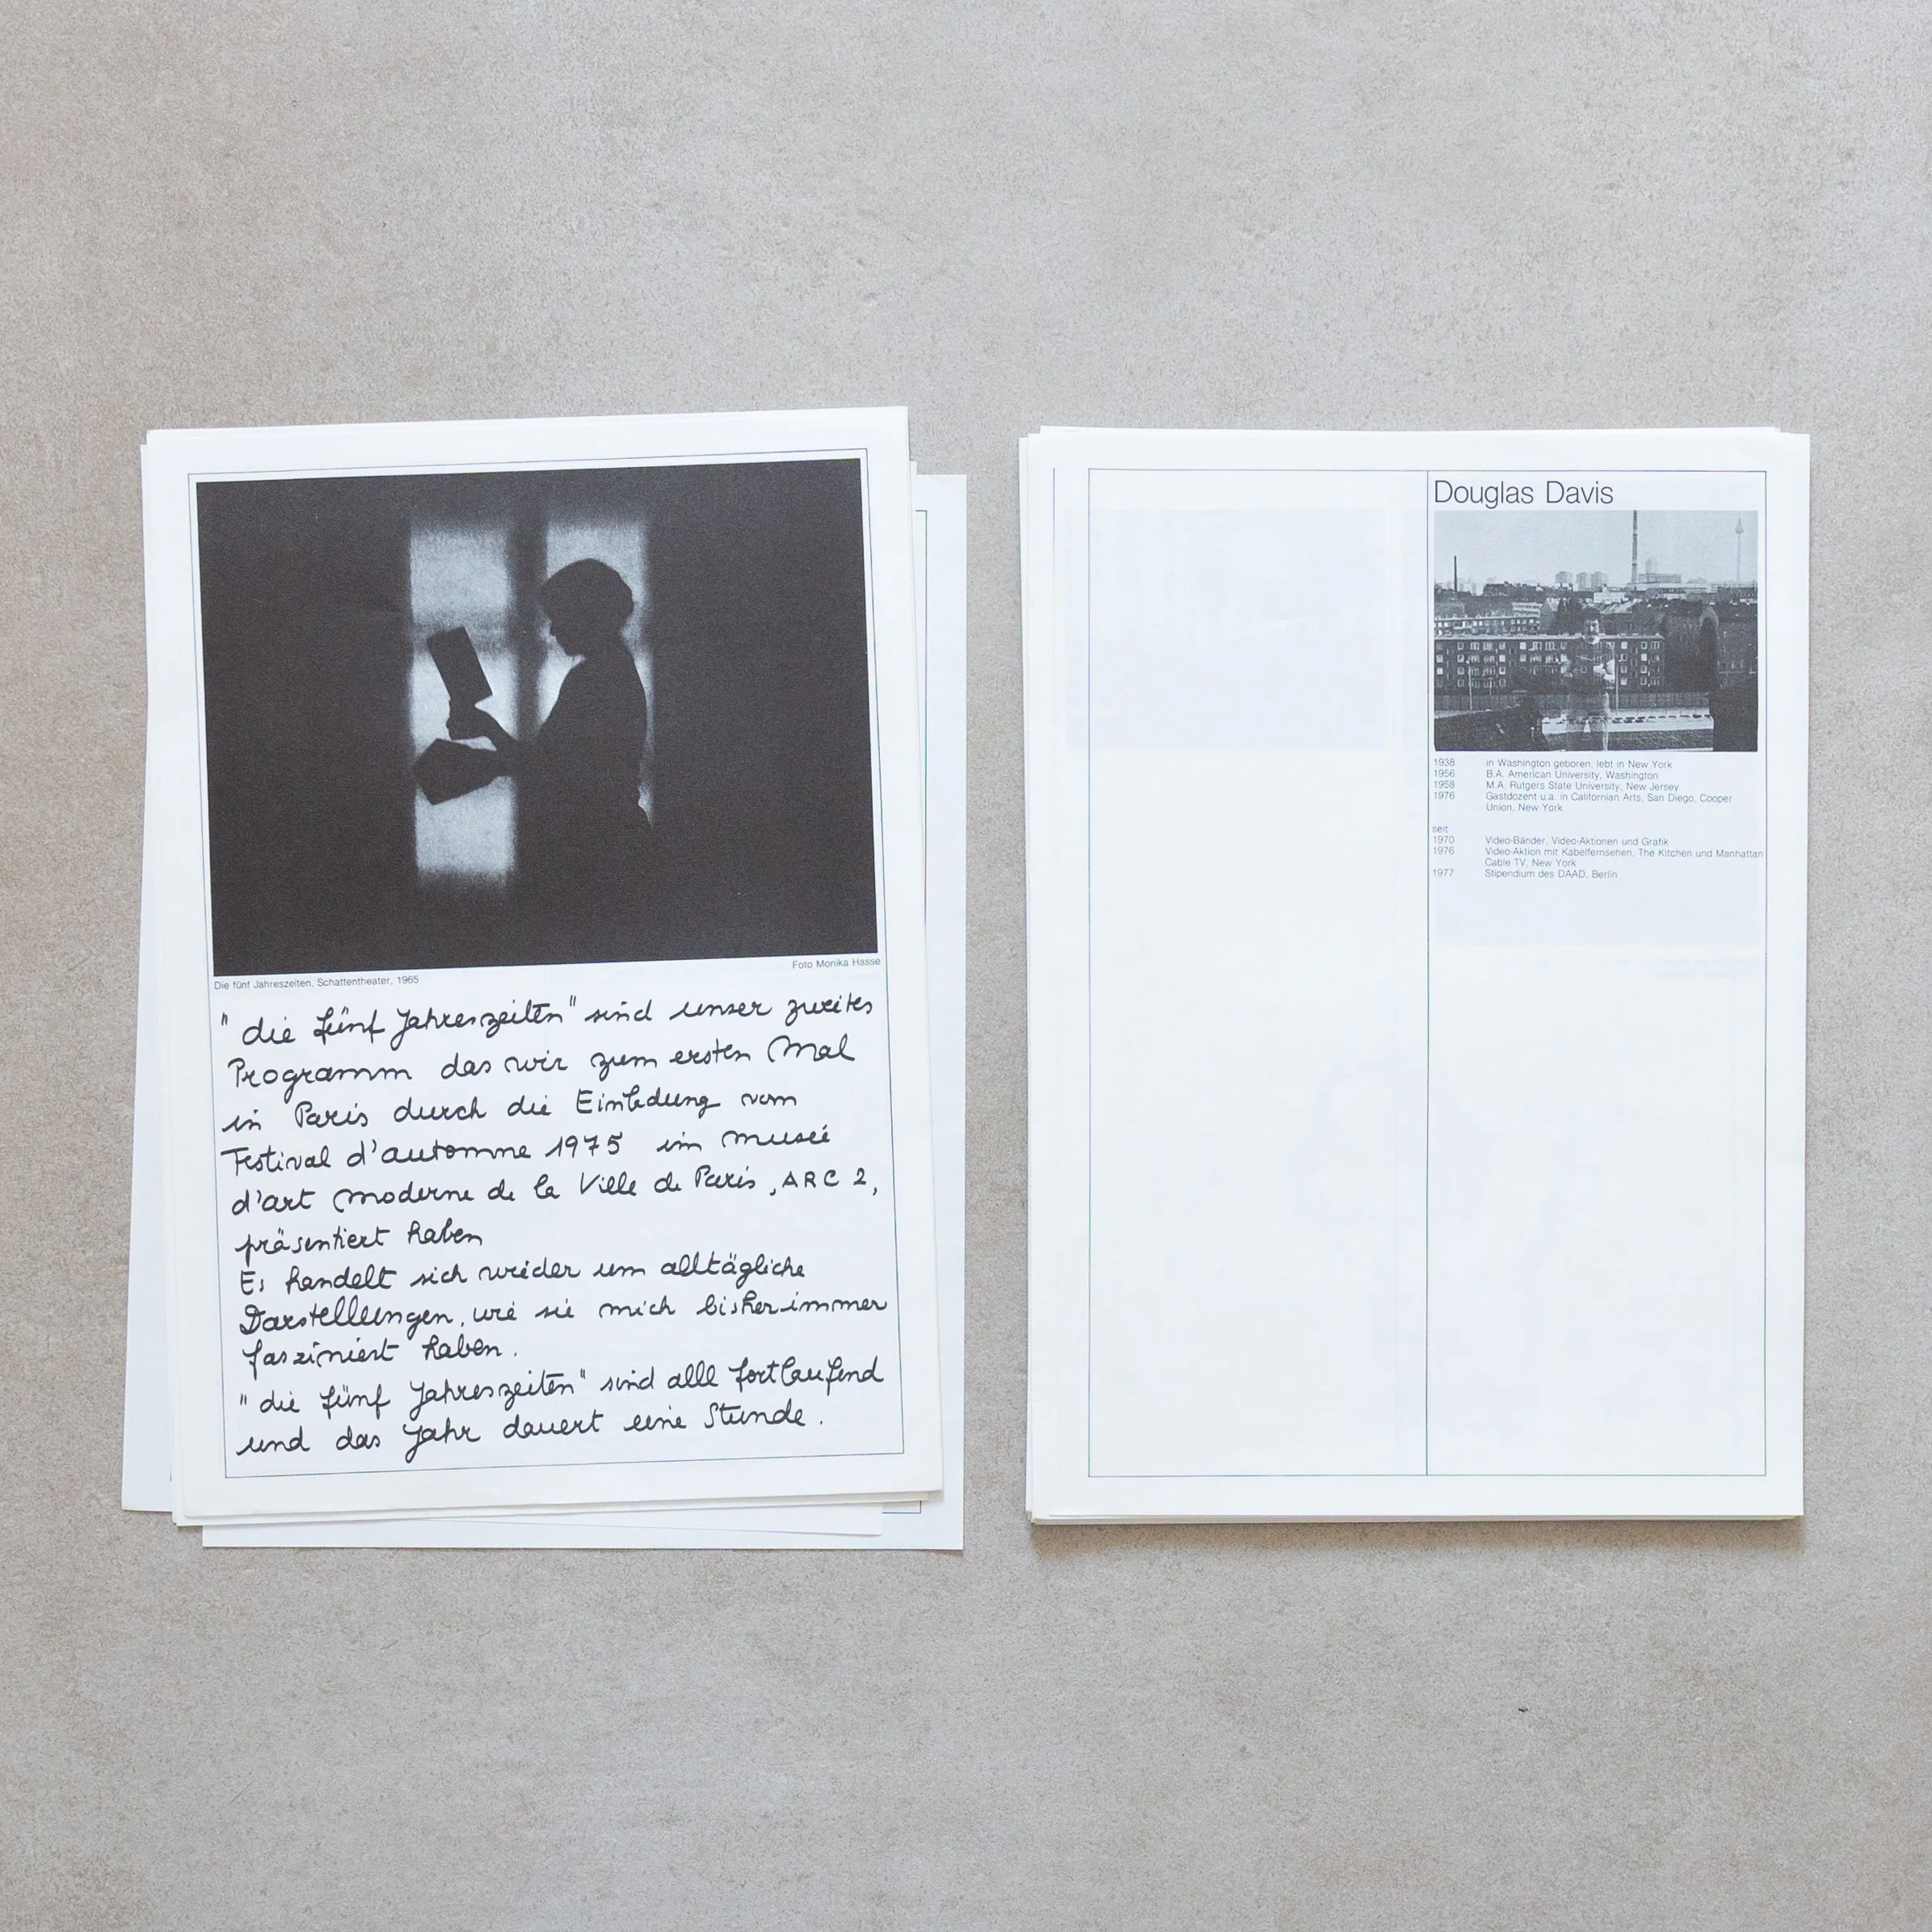 Die fünf Jahreszeiten, Schattentheater, 1965
Foto Monika Hasse
" die fünf Jahreszeiten" sind unser zweites
Programm das wir zum ersten Mal
in Paris durch die Einladung vom
Festival d'automne 1975 im museé
d'art moderne de la Ville de Paris, ARC 2,
präsentiert haben
Es handelt sich wieder um alltägliche
Darstellungen, wie sie mich bisher immer
fasziniert haben.
" die fünf Jahreszeiten" sind alle fortlaufend
und das Jahr dauert eine Stunde.
Douglas Davis
1938 in Washington geboren, lebt in New York
1956 B.A. American University, Washington
1958 M.A. Rutgers State University, New Jersey
1976 Gastdozent u.a. in Californian Arts, San Diego, Cooper
Union, New York
seit
1970 Video-Bänder, Video-Aktionen und Grafik
1976 Video-Aktion mit Kabelfernsehen, The Kitchen und Manhattan
Cable TV, New York
1977 Stipendium des DAAD, Berlin